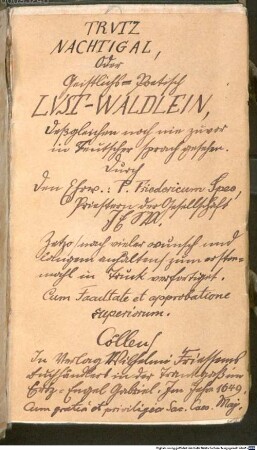 TRVTZ
NACHTIGAL,
Oder
Geistlichs-Poetisch
LVST-WALDLEIN,
Deßgleichen noch nie zuvor
in Teutscher sprach gesehen.
Durch
Den Ehrw.: P. Fridericum Spee,
Priestern der Gesellschaft
JESU.
Jetzo/nach vieler wunsch und
langem anhalten/zum ersten-
mahl in Truck verfertiget.
Cum Facultate et approbatione
superiorum.
Collen/
In Verlag Wilhelmi Friessems
Buchhändlers in der Tranckgaß im
Ertz-Engel Gabriel. Im Jahr 1649.
Cum gratia et privilegio Sac. Caes. Maj.